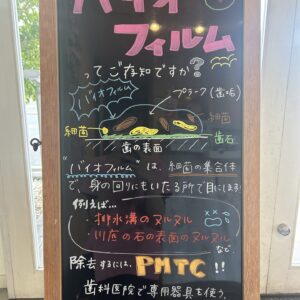 バイオ
フィルム
ってご存知ですか?
バイオフィルム
プラーク(歯垢)
細菌
細菌
歯石
歯の表面
"バイオフィルム"は、細菌の集合体
で、身の回りにもいたる所で目にします!
例えば…
・排水溝のヌルヌル
・川底の石の表面のヌルヌル
など
除去するには、PMTC!!
歯科医院で専用器具を使う